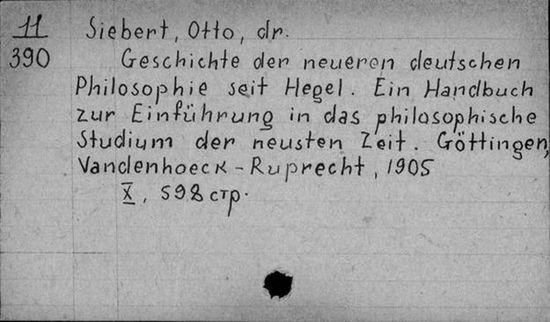 11 Siebert, Otto, dr.
390 Geschichte der neueren deutschen
Philosophie seit Hegel. Ein Handbuch
zur Einführung in das philosophische
Studium der neusten Zeit. Göttingen,
Vandenhoeck-Ruprecht, 1905
X, 598 стр.